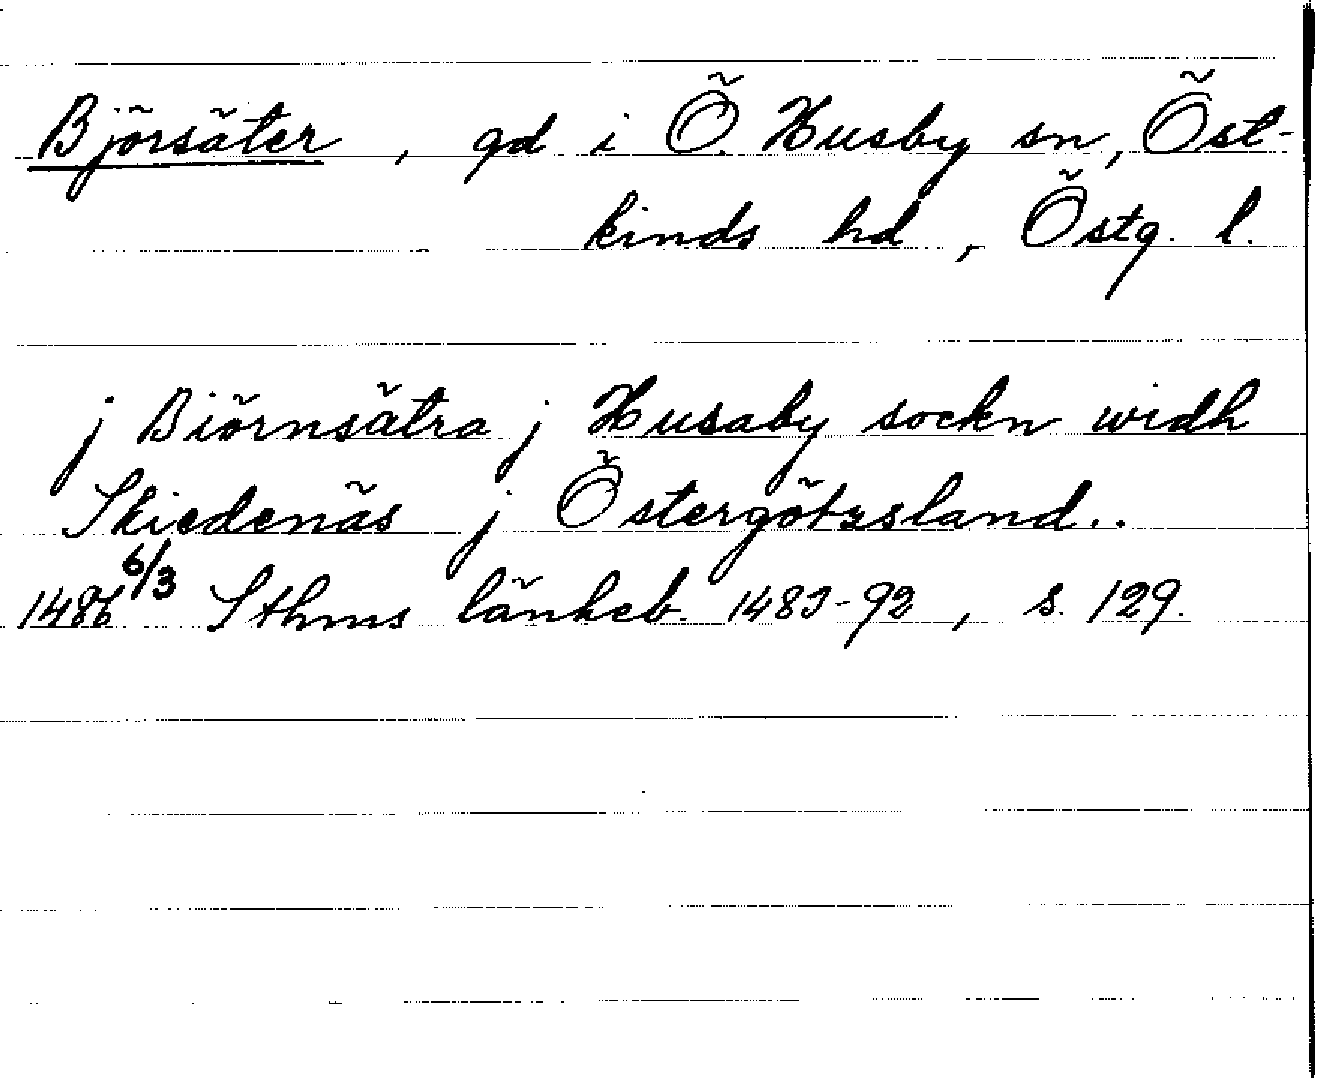 Björsäter, gd i Ö. Husby sn, Öst-
kinds hd, Östg. l.
j Biörnsätra j Husaby sockn widh
Skiedenäs j Östergötzsland..
1486 6/3 Sthms tänkeb. 1483-92, s. 129.